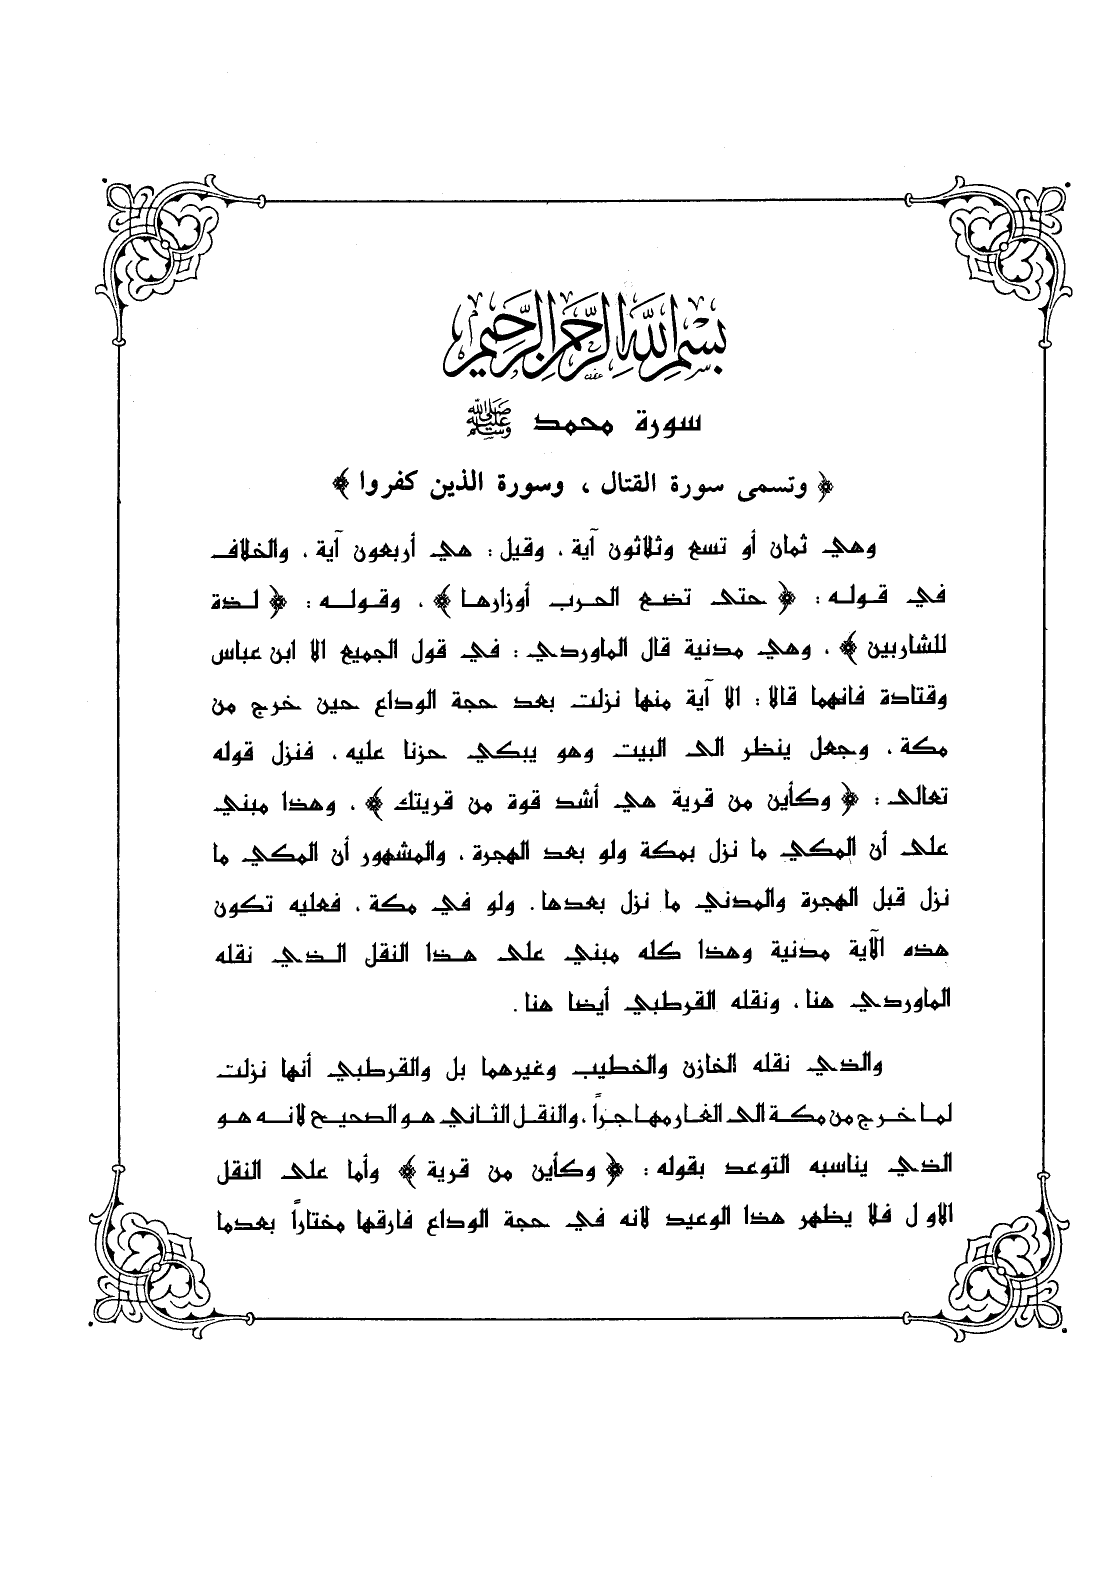 بسم الله الرحمن الرحيم
سورة محمد ﷺ
﴿ وتسمى سورة القتال ، وسورة الذين كفروا ﴾
وهي ثمان أو تسع وثلاثون آية ، وقيل : هي أربعون آية ، والخلاف
في قوله : ﴿ حتى تضع الحرب أوزارها ﴾ ، وقوله : ﴿ لذة
للشاربين ﴾ ، وهي مدنية قال الماوردي : في قول الجميع الا ابن عباس
وقتادة فانهما قالا : الا آية منها نزلت بعد حجة الوداع حين خرج من
مكة ، وجعل ينظر الى البيت وهو يبكي حزنا عليه ، فنزل قوله
تعالى : ﴿ وكأين من قرية هي أشد قوة من قريتك ﴾ ، وهذا مبني
على أن المكي ما نزل بمكة ولو بعد الهجرة ، والمشهور أن المكي ما
نزل قبل الهجرة والمدني ما نزل بعدها . ولو في مكة ، فعليه تكون
هذه الآية مدنية وهذا كله مبني على هذا النقل الذي نقله
الماوردي هنا ، ونقله القرطبي أيضا هنا .
والذي نقله الخازن والخطيب وغيرهما بل والقرطبي أنها نزلت
لما خرج من مكة الى الغار مهاجراً ، والنقل الثاني هو الصحيح لانه هو
الذي يناسبه التوعد بقوله : ﴿ وكأين من قرية ﴾ وأما على النقل
الاول فلا يظهر هذا الوعيد لانه في حجة الوداع فارقها مختاراً بعدما